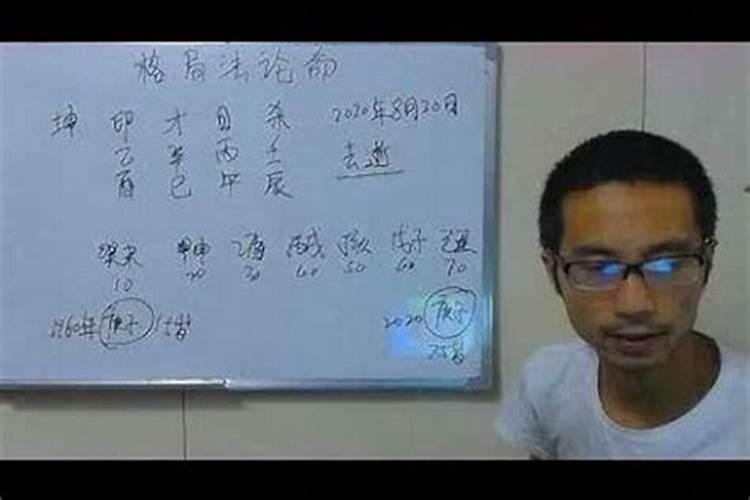 格局法论命
坤 印 才 日 杀 2020年8月20日
乙 辛 丙 壬 去逝
酉 巳 午 辰
甲申 乙酉 丙戌 戊子
10 20 30 40 50 60 70
1960年 庚子 15岁 2020 庚子
75岁